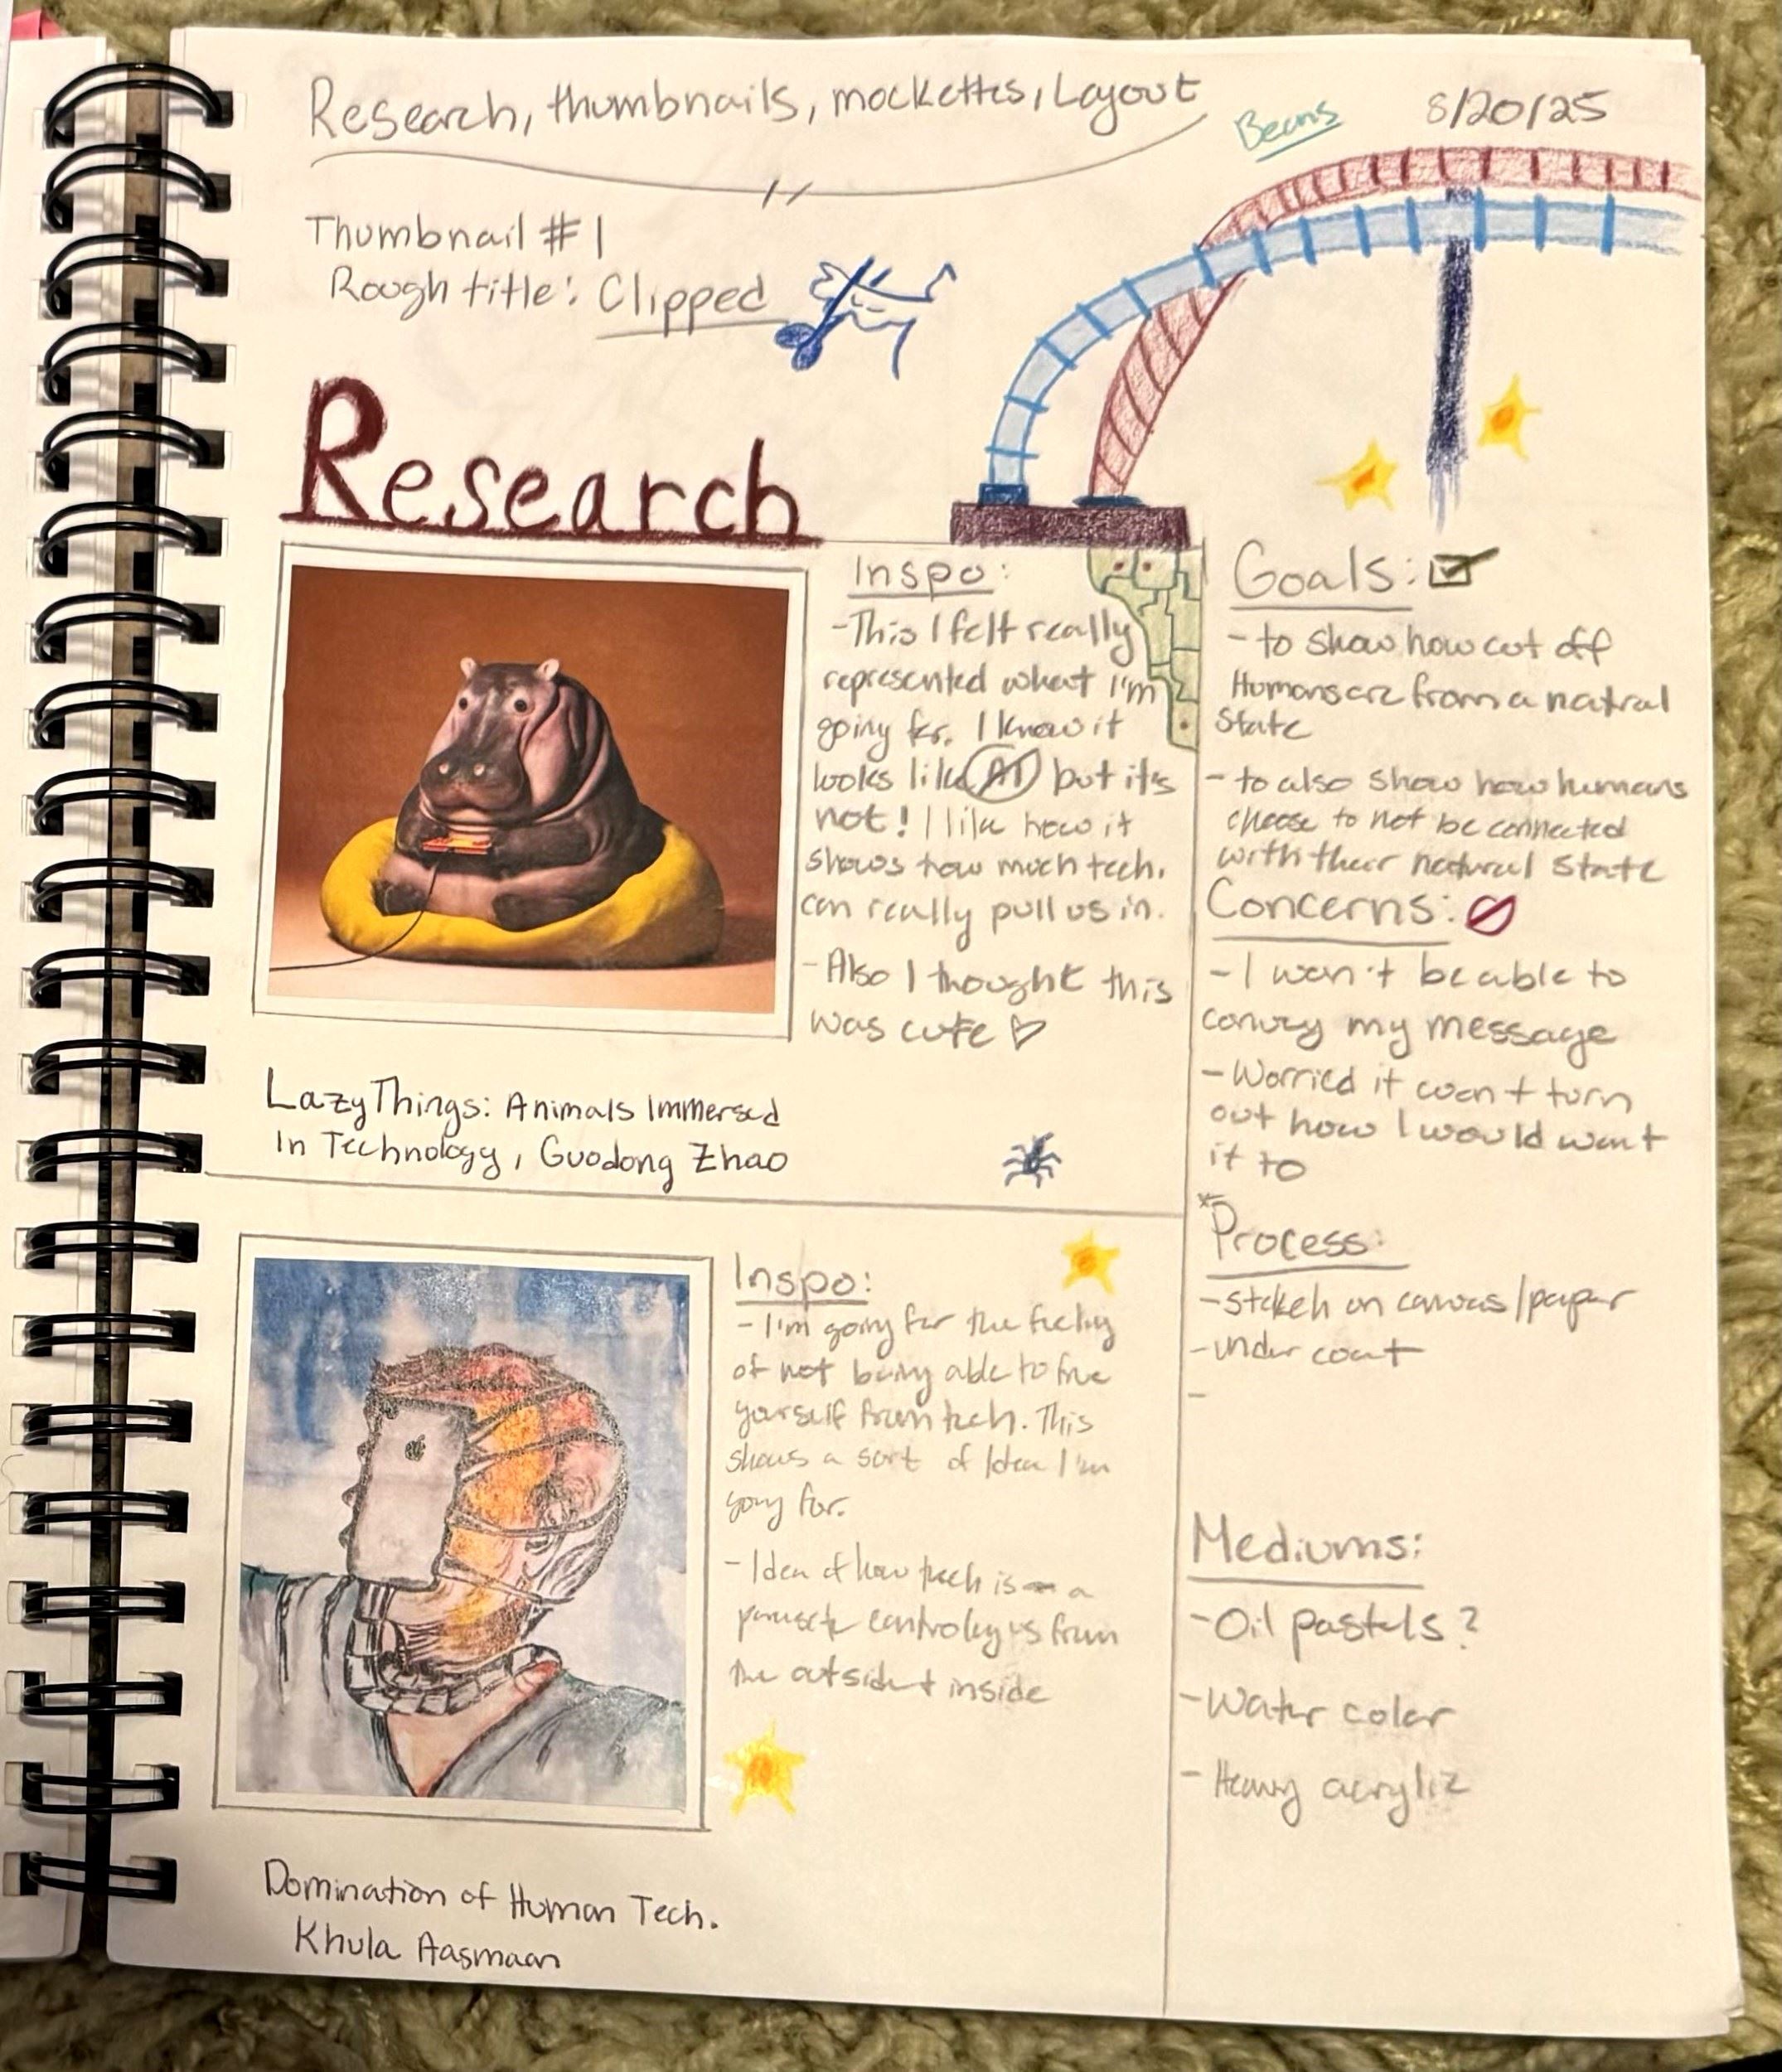 Research, thumbnails, mockettes, Layout
Beans
8/20/25
Thumbnail #1
Rough title: Clipped
Research
Inspo:
-This I felt really
represented what I'm
going for. I know it
looks like AI but it's
not! I like how it
shows how much tech.
can really pull us in.
-Also I thought this
was cute
LazyThings: Animals Immersed
In Technology, Guodong Zhao
Inspo:
-I'm going for the feeling
of not being able to free
yourself from tech. This
shows a sort of Idea I'm
going for.
-Idea of how tech is a
controling us from
the outside + inside
Domination of Human Tech.
Khula Aasmaan
Goals:
- to show how cut off
Humans are from a natral
State
- to also show how humans
choose to not be connected
with their natural State
Concerns:
- I won't be able to
convey my message
- Worried it won't turn
out how I would want
it to
*Process:
- on canvas/paper
- under coat
-
Mediums:
- Oil pastels?
- Water color
- Heavy